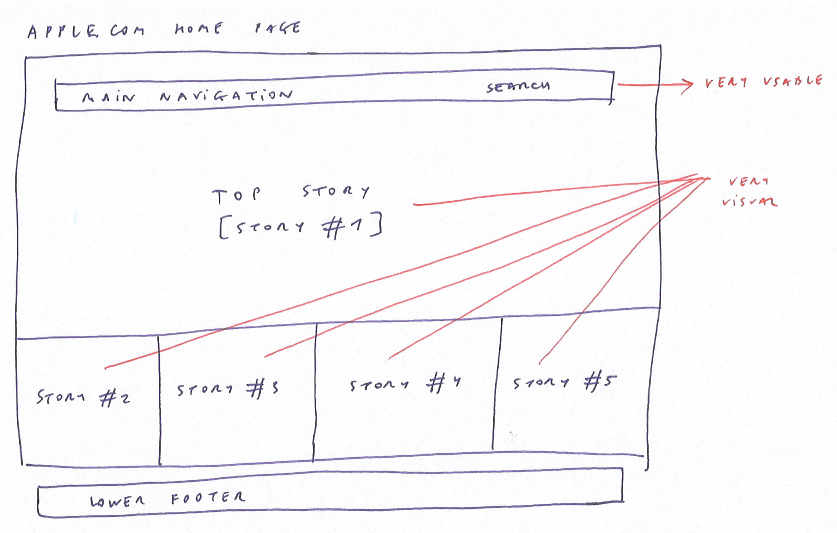 APPLE.COM HOME PAGE
MAIN NAVIGATION SEARCH
VERY USABLE
TOP STORY
[STORY #1]
VERY
VISUAL
STORY #2 STORY #3 STORY #4 STORY #5
LOWER FOOTER